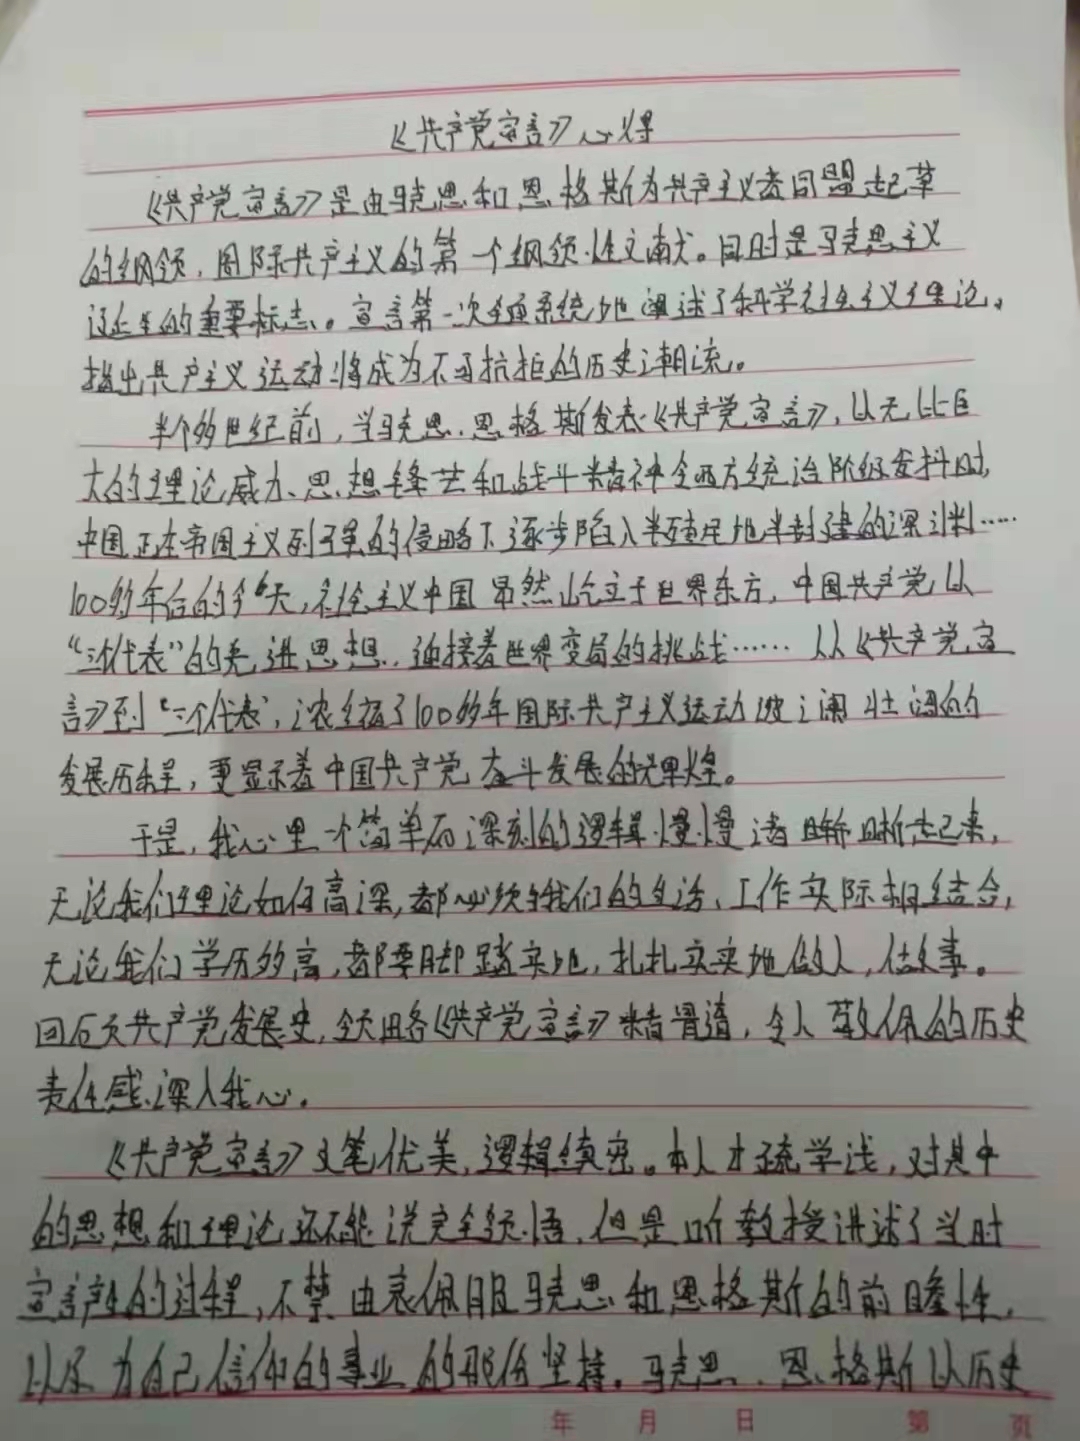 《共产党宣言》心得
《共产党宣言》是由马克思和恩格斯为共产主义者同盟起草
的纲领，国际共产主义的第一个纲领性文献。同时是马克思主义
诞生的重要标志。宣言第一次全面系统地阐述了科学社会主义理论。
指出共产主义运动将成为不可抗拒的历史潮流。
半个多世纪前，当马克思、恩格斯发表《共产党宣言》，以无比巨
大的理论威力、思想锋芒和战斗精神令西方统治阶级发抖时，
中国正在帝国主义列强的侵略下逐步陷入半殖民地半封建的深渊……
100多年后的今天，社会主义中国昂然屹立于世界东方，中国共产党以
“三个代表”的先进思想，迎接着世界变局的挑战……从《共产党宣
言》到“三个代表”，浓缩了100多年国际共产主义运动波澜壮阔的
发展历程，更显示着中国共产党奋斗发展的辉煌。
于是，我心里一个简单而深刻的逻辑慢慢清晰起来，
无论我们理论如何高深，都必须与我们的生活、工作实际相结合，
无论我们学历多高，都要脚踏实地，扎扎实实地做人，做事。
回顾共产党发展史，领略《共产党宣言》精髓，令人敬佩的历史
责任感深入我心。
《共产党宣言》文笔优美，逻辑缜密。本人才疏学浅，对其中
的思想和理论还不能说完全领悟，但是听教授讲述了当时
宣言产生的过程，不禁由衷佩服马克思和恩格斯的前瞻性，
以及为自己信仰的事业的那份坚持。马克思、恩格斯以历史
年 月 日 第 页